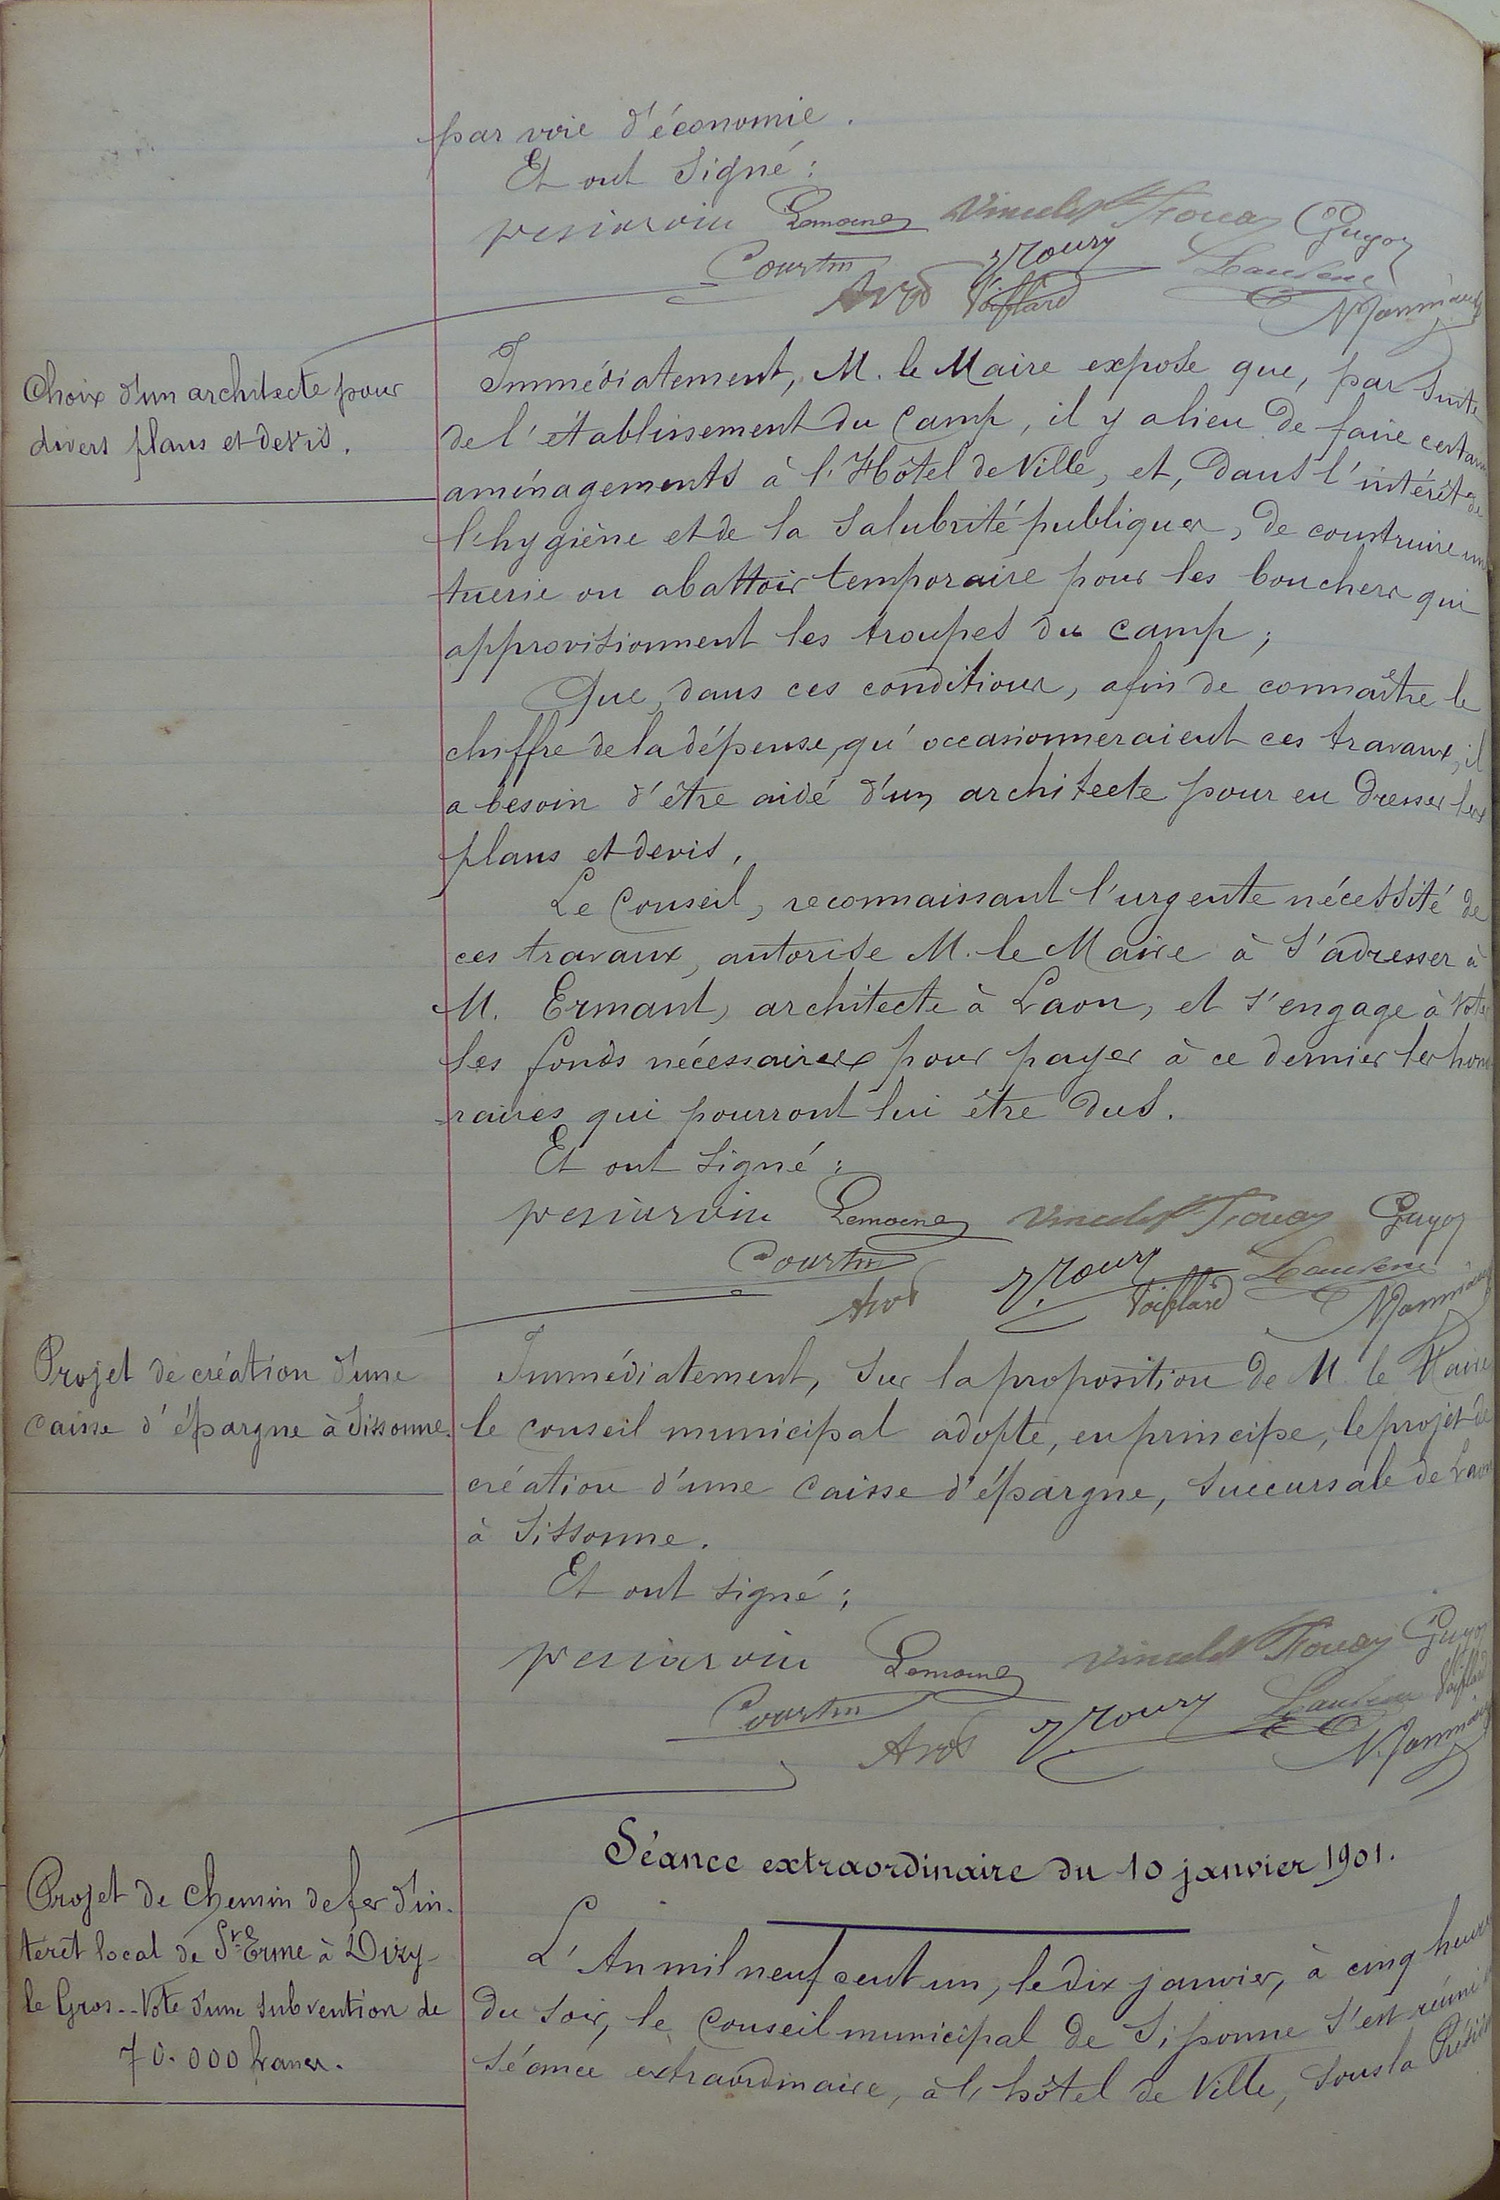 par voie d'économie.
Et ont signé :
Lemoine Vincelet Trouay Guyot
Courtin
Choix d'un architecte pour
divers plans et devis.
Immédiatement, M. le Maire expose que, par suite
de l'établissement du Camp, il y a lieu de faire certain
aménagements à l'Hôtel de Ville, et, dans l'intérêt de
l'hygiène et de la salubrité publiques, de construire une
tuerie ou abattoir temporaire pour les bouchers qui
approvisionnent les troupes du camp ;
Que, dans ces conditions, afin de connaître le
chiffre de la dépense, qu'occasionneraient ces travaux, il
a besoin d'être aidé d'un architecte pour en dresser les
plans et devis.
Le Conseil, reconnaissant l'urgente nécessité de
ces travaux, autorise M. le Maire à s'adresser à
M. Ermant, architecte à Laon, et s'engage à voter
les fonds nécessaires pour payer à ce dernier les hono
raires qui pourront lui être dus.
Et ont signé :
Lemoine Vincelet Trouay Guyot
Courtin
Projet de création d'une
caisse d'épargne à Sissonne.
Immédiatement, sur la proposition de M. le Maire
le conseil municipal adopte, en principe, le projet de
création d'une caisse d'épargne, succursale de Laon
à Sissonne.
Et ont signé ;
Lemoine Vincelet Trouay Guyot
Courtin
Séance extraordinaire du 10 janvier 1901.
Projet de chemin de fer d'in-
térêt local de St Erme à Dizy-
le Gros -- Vote d'une subvention de
70.000 francs.
L'An mil neuf cent un, le dix janvier, à cinq heures
du soir, le Conseil municipal de Sissonne s'est réuni
séance extraordinaire, à l'hôtel de Ville, sous la Présiden